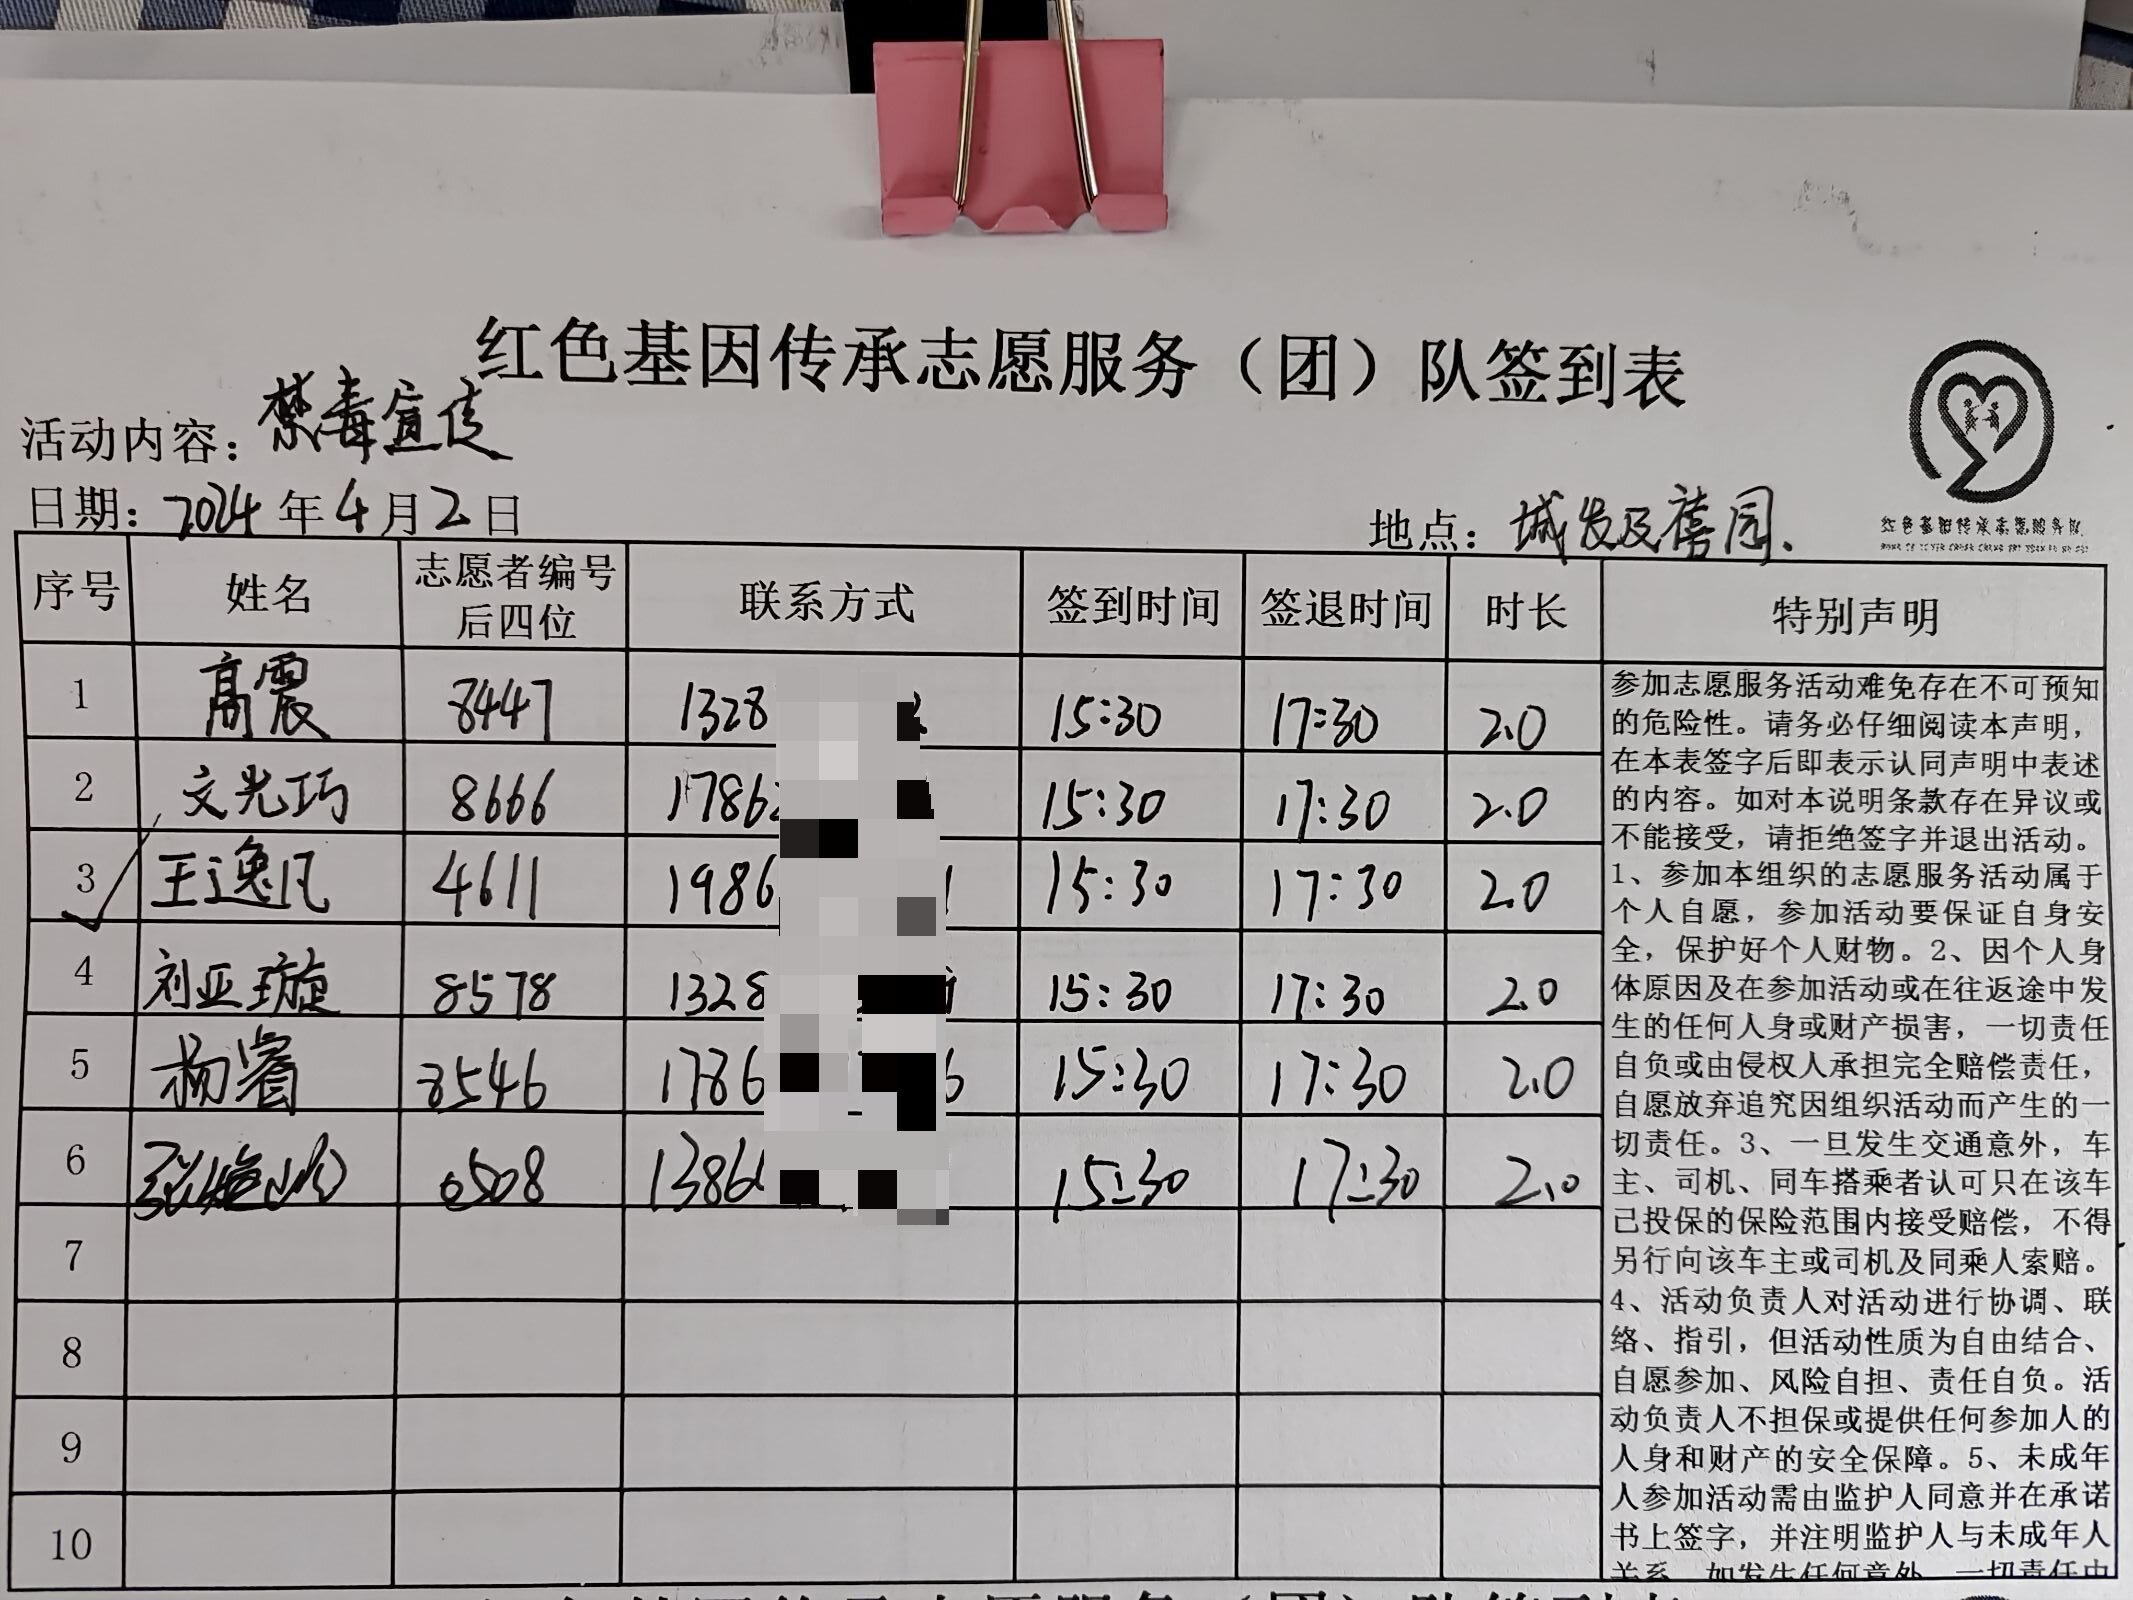 红色基因传承志愿服务（团）队签到表
活动内容：禁毒宣传
日期：2024年4月2日
地点：城发及禧园、
红色基因传承志愿服务队
序号 姓名 志愿者编号后四位 联系方式 签到时间 签退时间 时长 特别声明
1 高震 8447 1328 15:30 17:30 2.0
2 文光巧 8666 1786 15:30 17:30 2.0
3 王逸凡 4611 1986 15:30 17:30 2.0
4 刘亚璇 8578 1328 15:30 17:30 2.0
5 杨睿 8546 1786 15:30 17:30 2.0
6 0508 1386 15:30 17:30 2.0
7
8
9
10
参加志愿服务活动难免存在不可预知
的危险性。请务必仔细阅读本声明，
在本表签字后即表示认同声明中表述
的内容。如对本说明条款存在异议或
不能接受，请拒绝签字并退出活动。
1、参加本组织的志愿服务活动属于
个人自愿，参加活动要保证自身安
全，保护好个人财物。2、因个人身
体原因及在参加活动或在往返途中发
生的任何人身或财产损害，一切责任
自负或由侵权人承担完全赔偿责任，
自愿放弃追究因组织活动而产生的一
切责任。3、一旦发生交通意外，车
主、司机、同车搭乘者认可只在该车
已投保的保险范围内接受赔偿，不得
另行向该车主或司机及同乘人索赔。
4、活动负责人对活动进行协调、联
络、指引，但活动性质为自由结合、
自愿参加、风险自担、责任自负。活
动负责人不担保或提供任何参加人的
人身和财产的安全保障。5、未成年
人参加活动需由监护人同意并在承诺
书上签字，并注明监护人与未成年人
关系，如发生任何意外，一切责任由